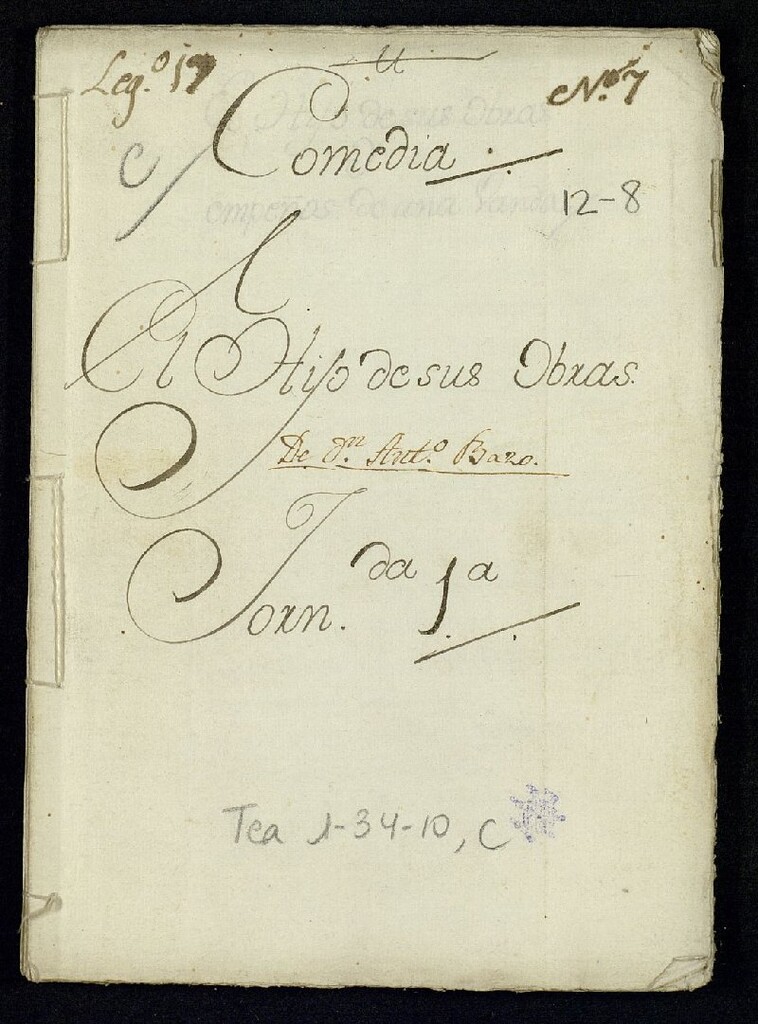 Leg.º 17
N.º 7
C
Comedia.
12-8
El Hijo de sus Obras.
De d.n Ant.º Bazo.
Jorn.da 1a
Tea 1-34-10, C